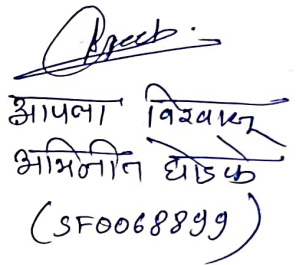 आपला विश्वासू
अभिनीत घोडके
(SF0068899)